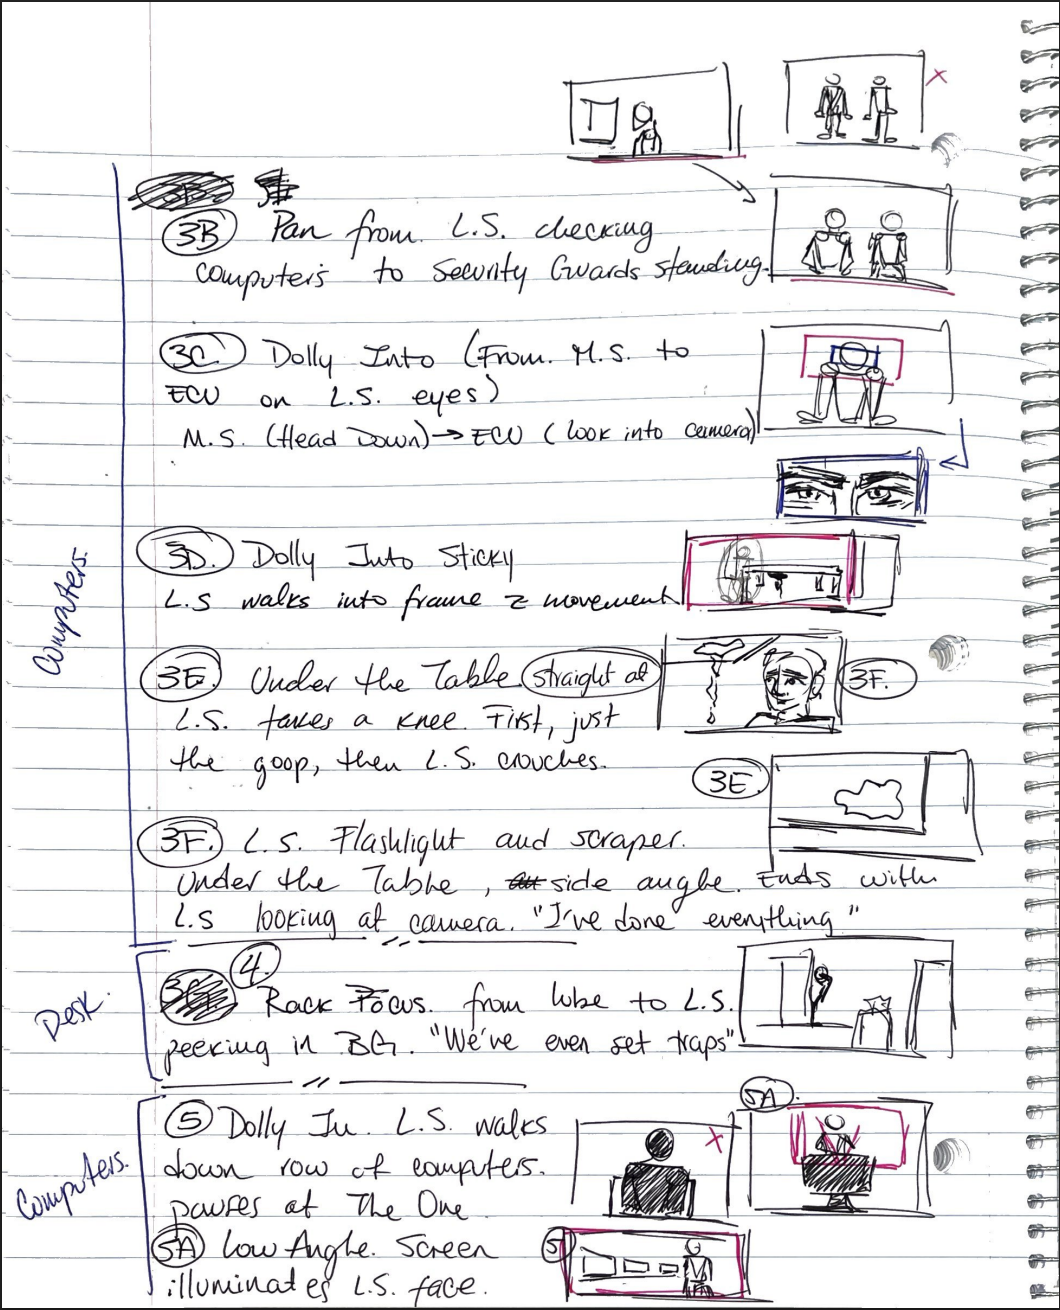 3B Pan from L.S. checking
computer's to Security Guards standing.
3C Dolly Into (From M.S. to
ECU on L.S. eyes)
M.S. (Head Down) → ECU (look into camera)
3D. Dolly Into Sticky
L.S walks into frame z movement
3E. Under the Table straight at
3F.
L.S. takes a knee. First, just
the goop, then L.S. crouches.
3E
3F. L.S. Flashlight and scraper.
Under the Table, side angle. Ends with
L.S looking at camera. "I've done everything"
Computers.
4.
Rack Focus from lube to L.S.
peeking in BG. "We've even set traps"
Desk.
5A.
5 Dolly In. L.S. walks
down row of computers.
pauses at The One
5A Low Angle. Screen
5
illuminates L.S. face.
Computers.